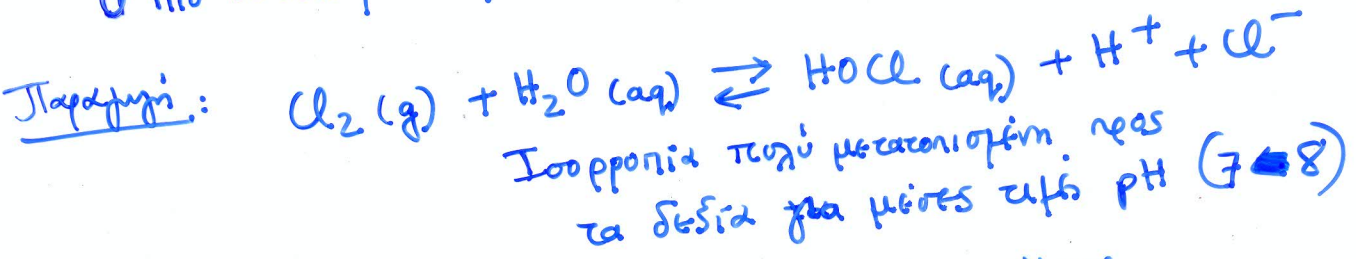 Παραγωγή: Cl₂ (g) + H₂O (aq) ⇄ HOCl (aq) + H⁺ + Cl⁻
Ισορροπία πολύ μετατοπισμένη προς
τα δεξιά για μέσες τιμές pH (7-8)